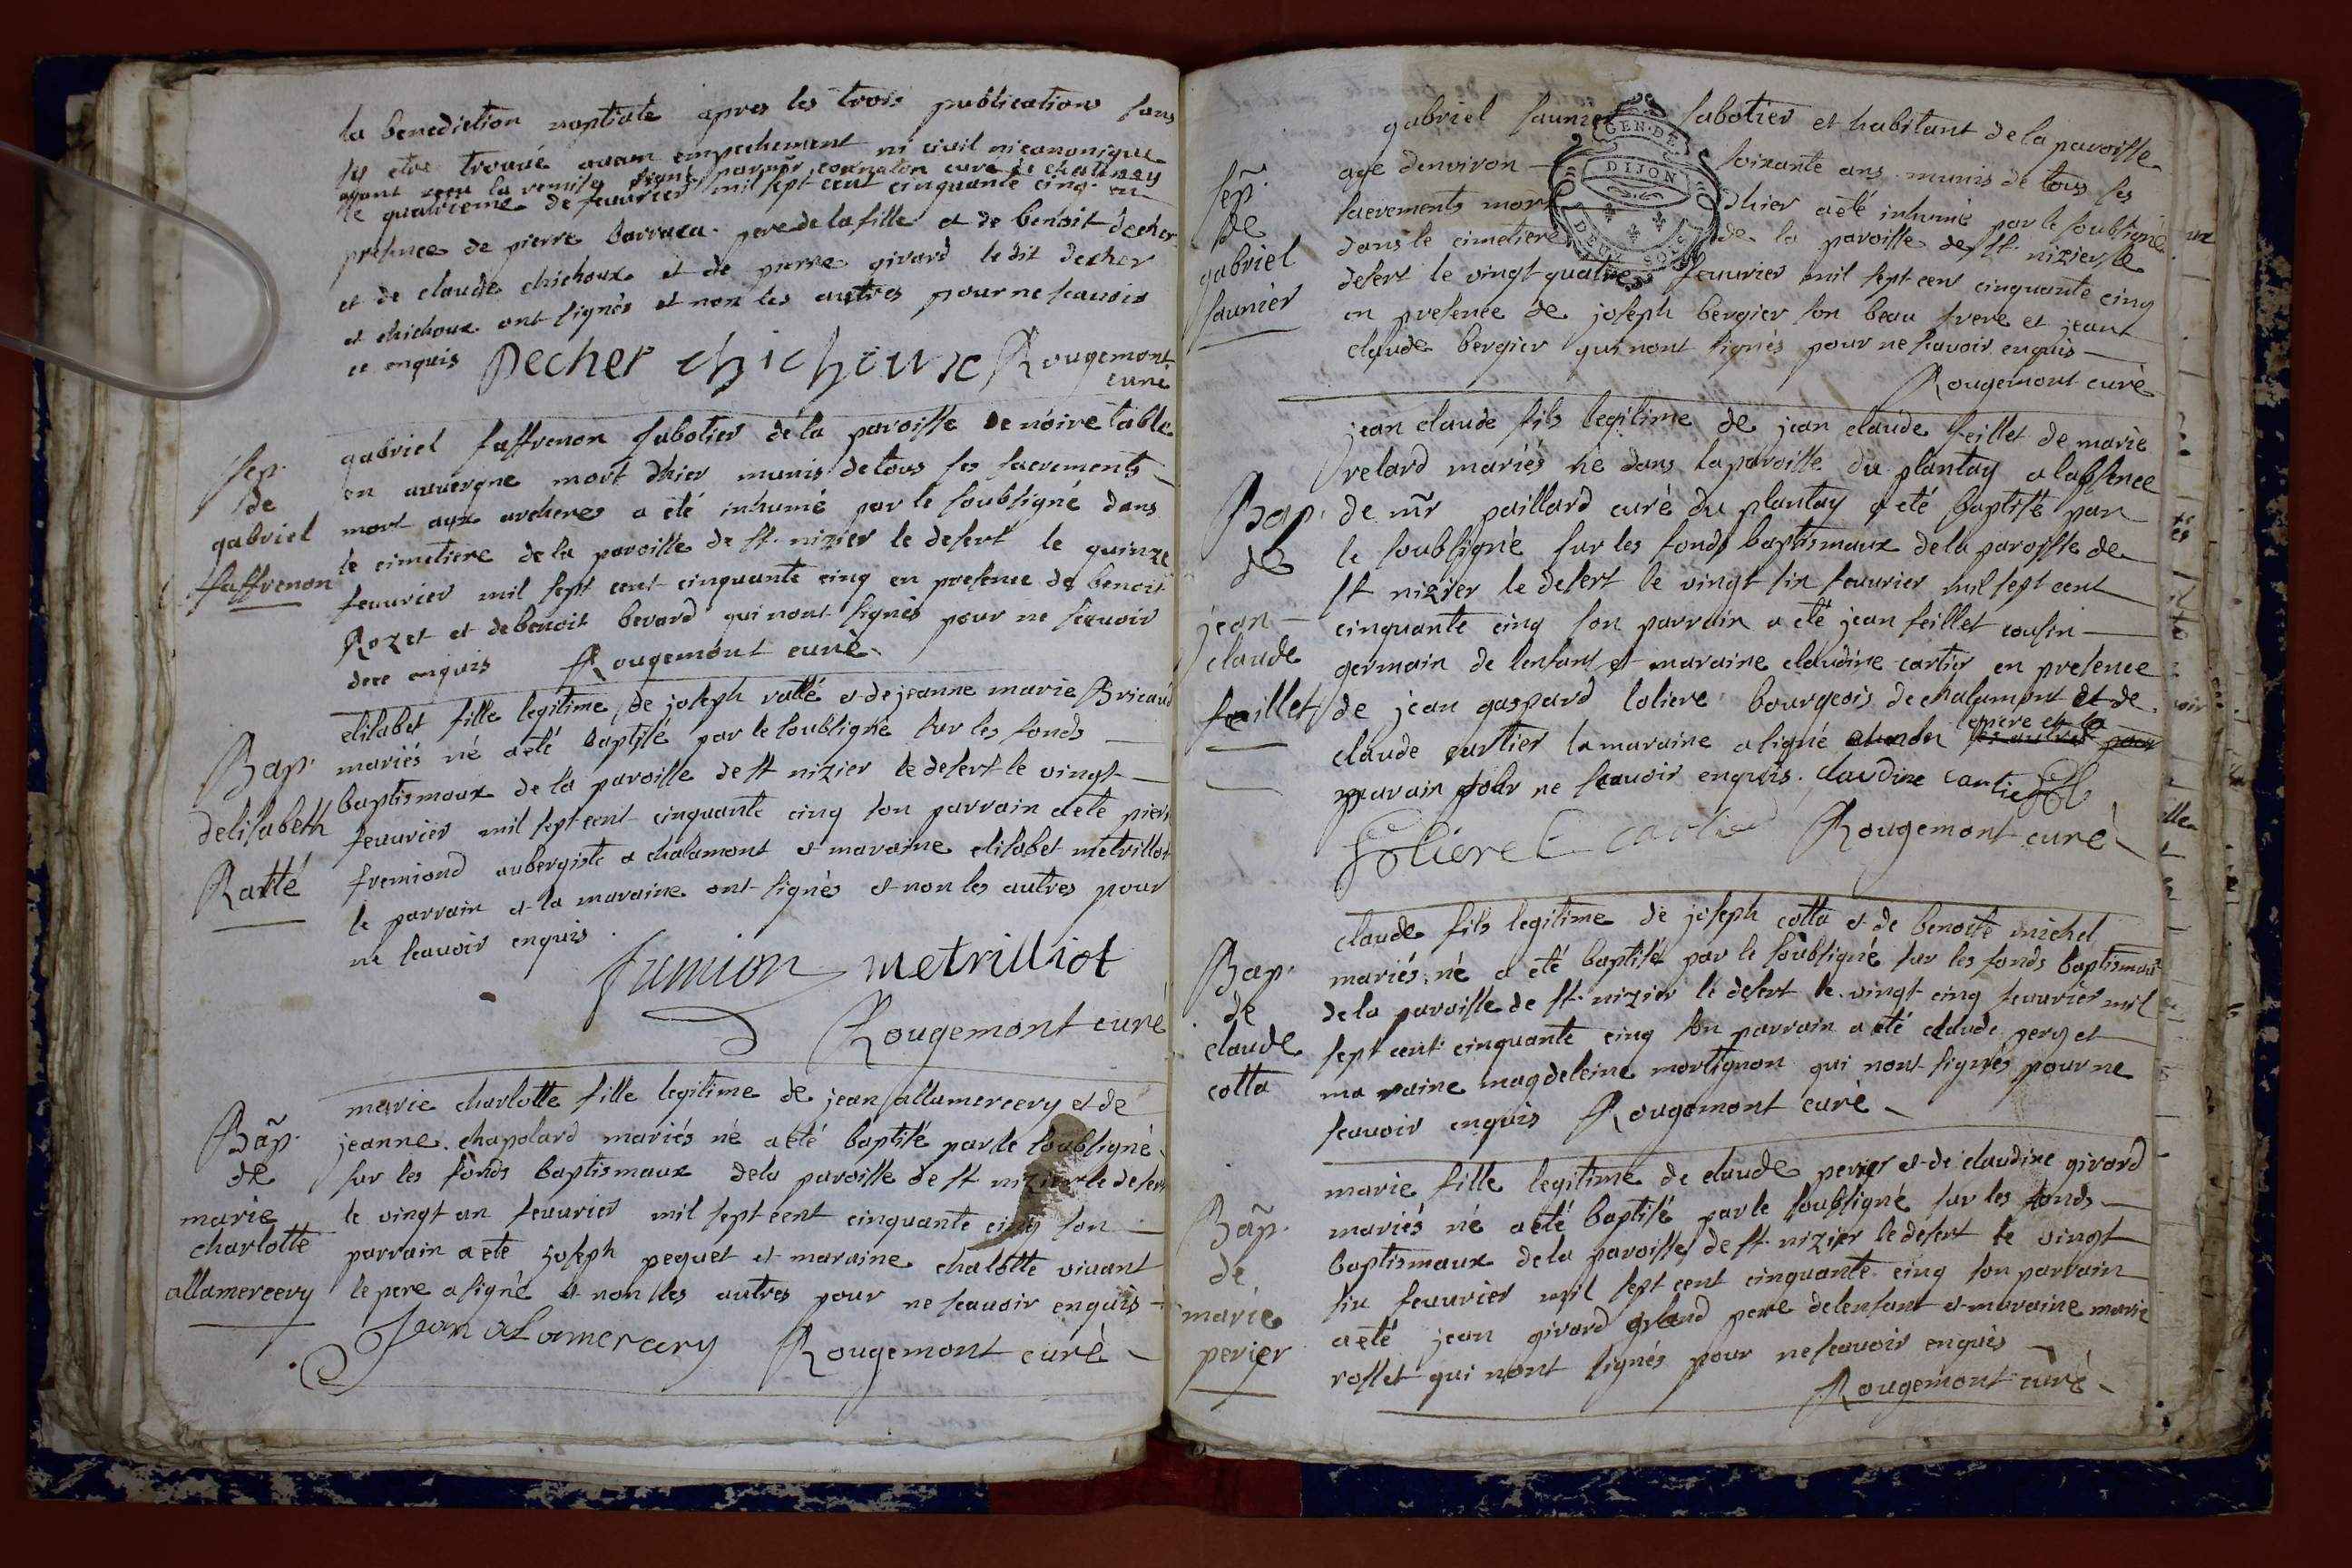 la benediction nuptiale apres les trois publications sans
sy etre trouvé aucun empechement ni civil ni canonique
ayant reçu la remise signé par mr cornaton curé de chatenay
le quatrieme de feuvrier mil sept cent cinquante cinq en
presence de pierre barraca pere de la fille et de benoit decher
et de claude chichoux et de pierre girard le dit decher
et chichoux ont signés et non les autres pour ne scavoir
ce enquis Decher chichoux Rougemont
curé
sep.
de
gabriel
saffrenon
gabriel saffrenon sabotier de la paroisse de noire table
en auvergne mort dhier munis de tous ses sacrements
mort aux archeres a eté inhumé par le soubsigné dans
le cimetiere de la paroisse de st nizier le desert le quinze
feuvrier mil sept cent cinquante cinq en presence de benoit
Rozet et de benoit bevard qui nont signés pour ne scavoir
dece enquis Rougemont curé
Bap.
delisabeth
Ratté
elisabet fille legitime de joseph ratté et de jeanne marie Bricaud
mariés né a eté baptisé par le soubsigné sur les fonds
baptismaux de la paroisse de st nizier le desert le vingt
feuvrier mil sept cent cinquante cinq son parrain a eté pierre
fremiond aubergiste a chalamont et maraine elisabet metrillot
le parrain et la maraine ont signés et non les autres pour
ne scavoir enquis
fumion metrilliot
Rougemont curé
Bap.
de
marie
charlotte
allamercery
marie charlotte fille legitime de jean allamercery et de
jeanne chapolard mariés né a eté baptisé par le soubsigné
sur les fonds baptismaux de la paroisse de st nizier le desert
le vingt un feuvrier mil sept cent cinquante cinq son
parrain a eté joseph pequet et maraine chalotte vivant
le pere a signé et non les autres pour ne scavoir enquis
Jean alamercery Rougemont curé
sep.
de
gabriel
saunier
gabriel saunier sabotier et habitant de la paroisse
age denviron soixante ans munis de tous ses
sacrements mort dhier a eté inhumé par le soubsigné
dans le cimetiere de la paroisse de st nizier le
desert le vingt quatre feuvrier mil sept cent cinquante cinq
en presence de joseph bergier son beau frere et jean
claude bergier qui nont signés pour ne scavoir enquis
Rougemont curé
GEN. DE
DIJON
DEUX SOLS
Bap.
de
jean
claude
feillet
jean claude fils legitime de jean claude feillet de marie
velard mariés né dans la paroisse du plantay a labsence
de mr paillard curé du plantay a eté baptisé par
le soubsigné sur les fonds baptismaux de la paroisse de
st nizier le desert le vingt six feuvrier mil sept cent
cinquante cinq son parrain a eté jean feillet cousin
germain de lenfant et maraine claudine cartier en presence
de jean gaspard loliere bourgeois de chalamont et de
claude cartier la maraine a signé et non les autres pour
le pere et le
parain pour ne scavoir enquis. claudine cartier
Loliere C cartier Rougemont curé
Bap.
de
claude
cotta
claude fils legitime de joseph cotta et de benoite michel
mariés né a eté baptisé par le soubsigné sur les fonds baptismaux
de la paroisse de st nizier le desert le vingt cinq feuvrier mil
sept cent cinquante cinq son parrain a eté claude perget
maraine magdeleine mortignon qui nont signés pour ne
scavoir enquis Rougemont curé
Bap.
de
marie
perier
marie fille legitime de claude perier et de claudine girard
mariés né a eté baptisé par le soubsigné sur les fonds
baptismaux de la paroisse de st nizier le desert le vingt
six feuvrier mil sept cent cinquante cinq son parrain
a eté jean girard grand pere delenfant et maraine marie
rosset qui nont signés pour ne scavoir enquis
Rougemont curé